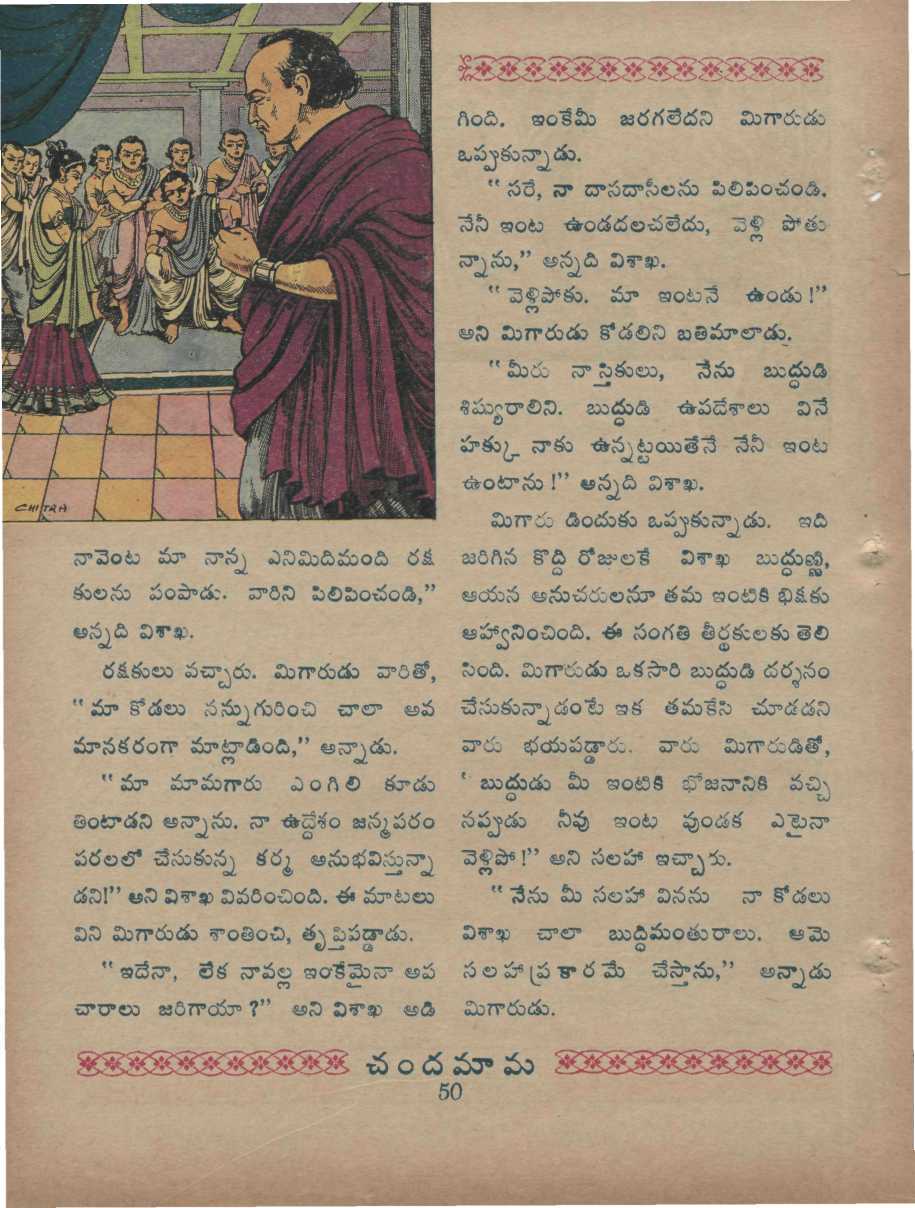 CHITRA
నావెంట మా నాన్న ఎనిమిదిమంది రక్ష
కులను పంపాడు. వారిని పిలిపించండి,”
అన్నది విశాఖ.
రక్షకులు వచ్చారు. మిగారుడు వారితో,
“మా కోడలు నన్నుగురించి చాలా అవ
మానకరంగా మాట్లాడింది,” అన్నాడు.
“మా మామగారు ఎంగిలి కూడు
తింటాడని అన్నాను. నా ఉద్దేశం జన్మపరం
పరలలో చేసుకున్న కర్మ అనుభవిస్తున్నా
డని!” అని విశాఖ వివరించింది. ఈ మాటలు
విని మిగారుడు శాంతించి, తృప్తిపడ్డాడు.
“ఇదేనా, లేక నావల్ల ఇంకేమైనా అప
చారాలు జరిగాయా?” అని విశాఖ అడి
గింది. ఇంకేమీ జరగలేదని మిగారుడు
ఒప్పుకున్నాడు.
“సరే, నా దాసదాసీలను పిలిపించండి.
నేనీ ఇంట ఉండదలచలేదు, వెళ్లి పోతు
న్నాను,” అన్నది విశాఖ.
“వెళ్లిపోకు. మా ఇంటనే ఉండు!”
అని మిగారుడు కోడలిని బతిమాలాడు.
“మీరు నాస్తికులు, నేను బుద్ధుడి
శిష్యురాలిని. బుద్ధుడి ఉపదేశాలు వినే
హక్కు నాకు ఉన్నట్టయితేనే నేనీ ఇంట
ఉంటాను!” అన్నది విశాఖ.
మిగారు డిందుకు ఒప్పుకున్నాడు. ఇది
జరిగిన కొద్ది రోజులకే విశాఖ బుద్ధుణ్ణి,
ఆయన అనుచరులనూ తమ ఇంటికి భిక్షకు
ఆహ్వానించింది. ఈ సంగతి తీర్థకులకు తెలి
సింది. మిగారుడు ఒకసారి బుద్ధుడి దర్శనం
చేసుకున్నాడంటే ఇక తమకేసి చూడడని
వారు భయపడ్డారు. వారు మిగారుడితో,
‘బుద్ధుడు మీ ఇంటికి భోజనానికి వచ్చి
నప్పుడు నీవు ఇంట వుండక ఎటైనా
వెళ్లిపో!” అని సలహా ఇచ్చారు.
“నేను మీ సలహా వినను నా కోడలు
విశాఖ చాలా బుద్ధిమంతురాలు. ఆమె
సలహాప్రకారమే చేస్తాను,” అన్నాడు
మిగారుడు.
చందమామ
50